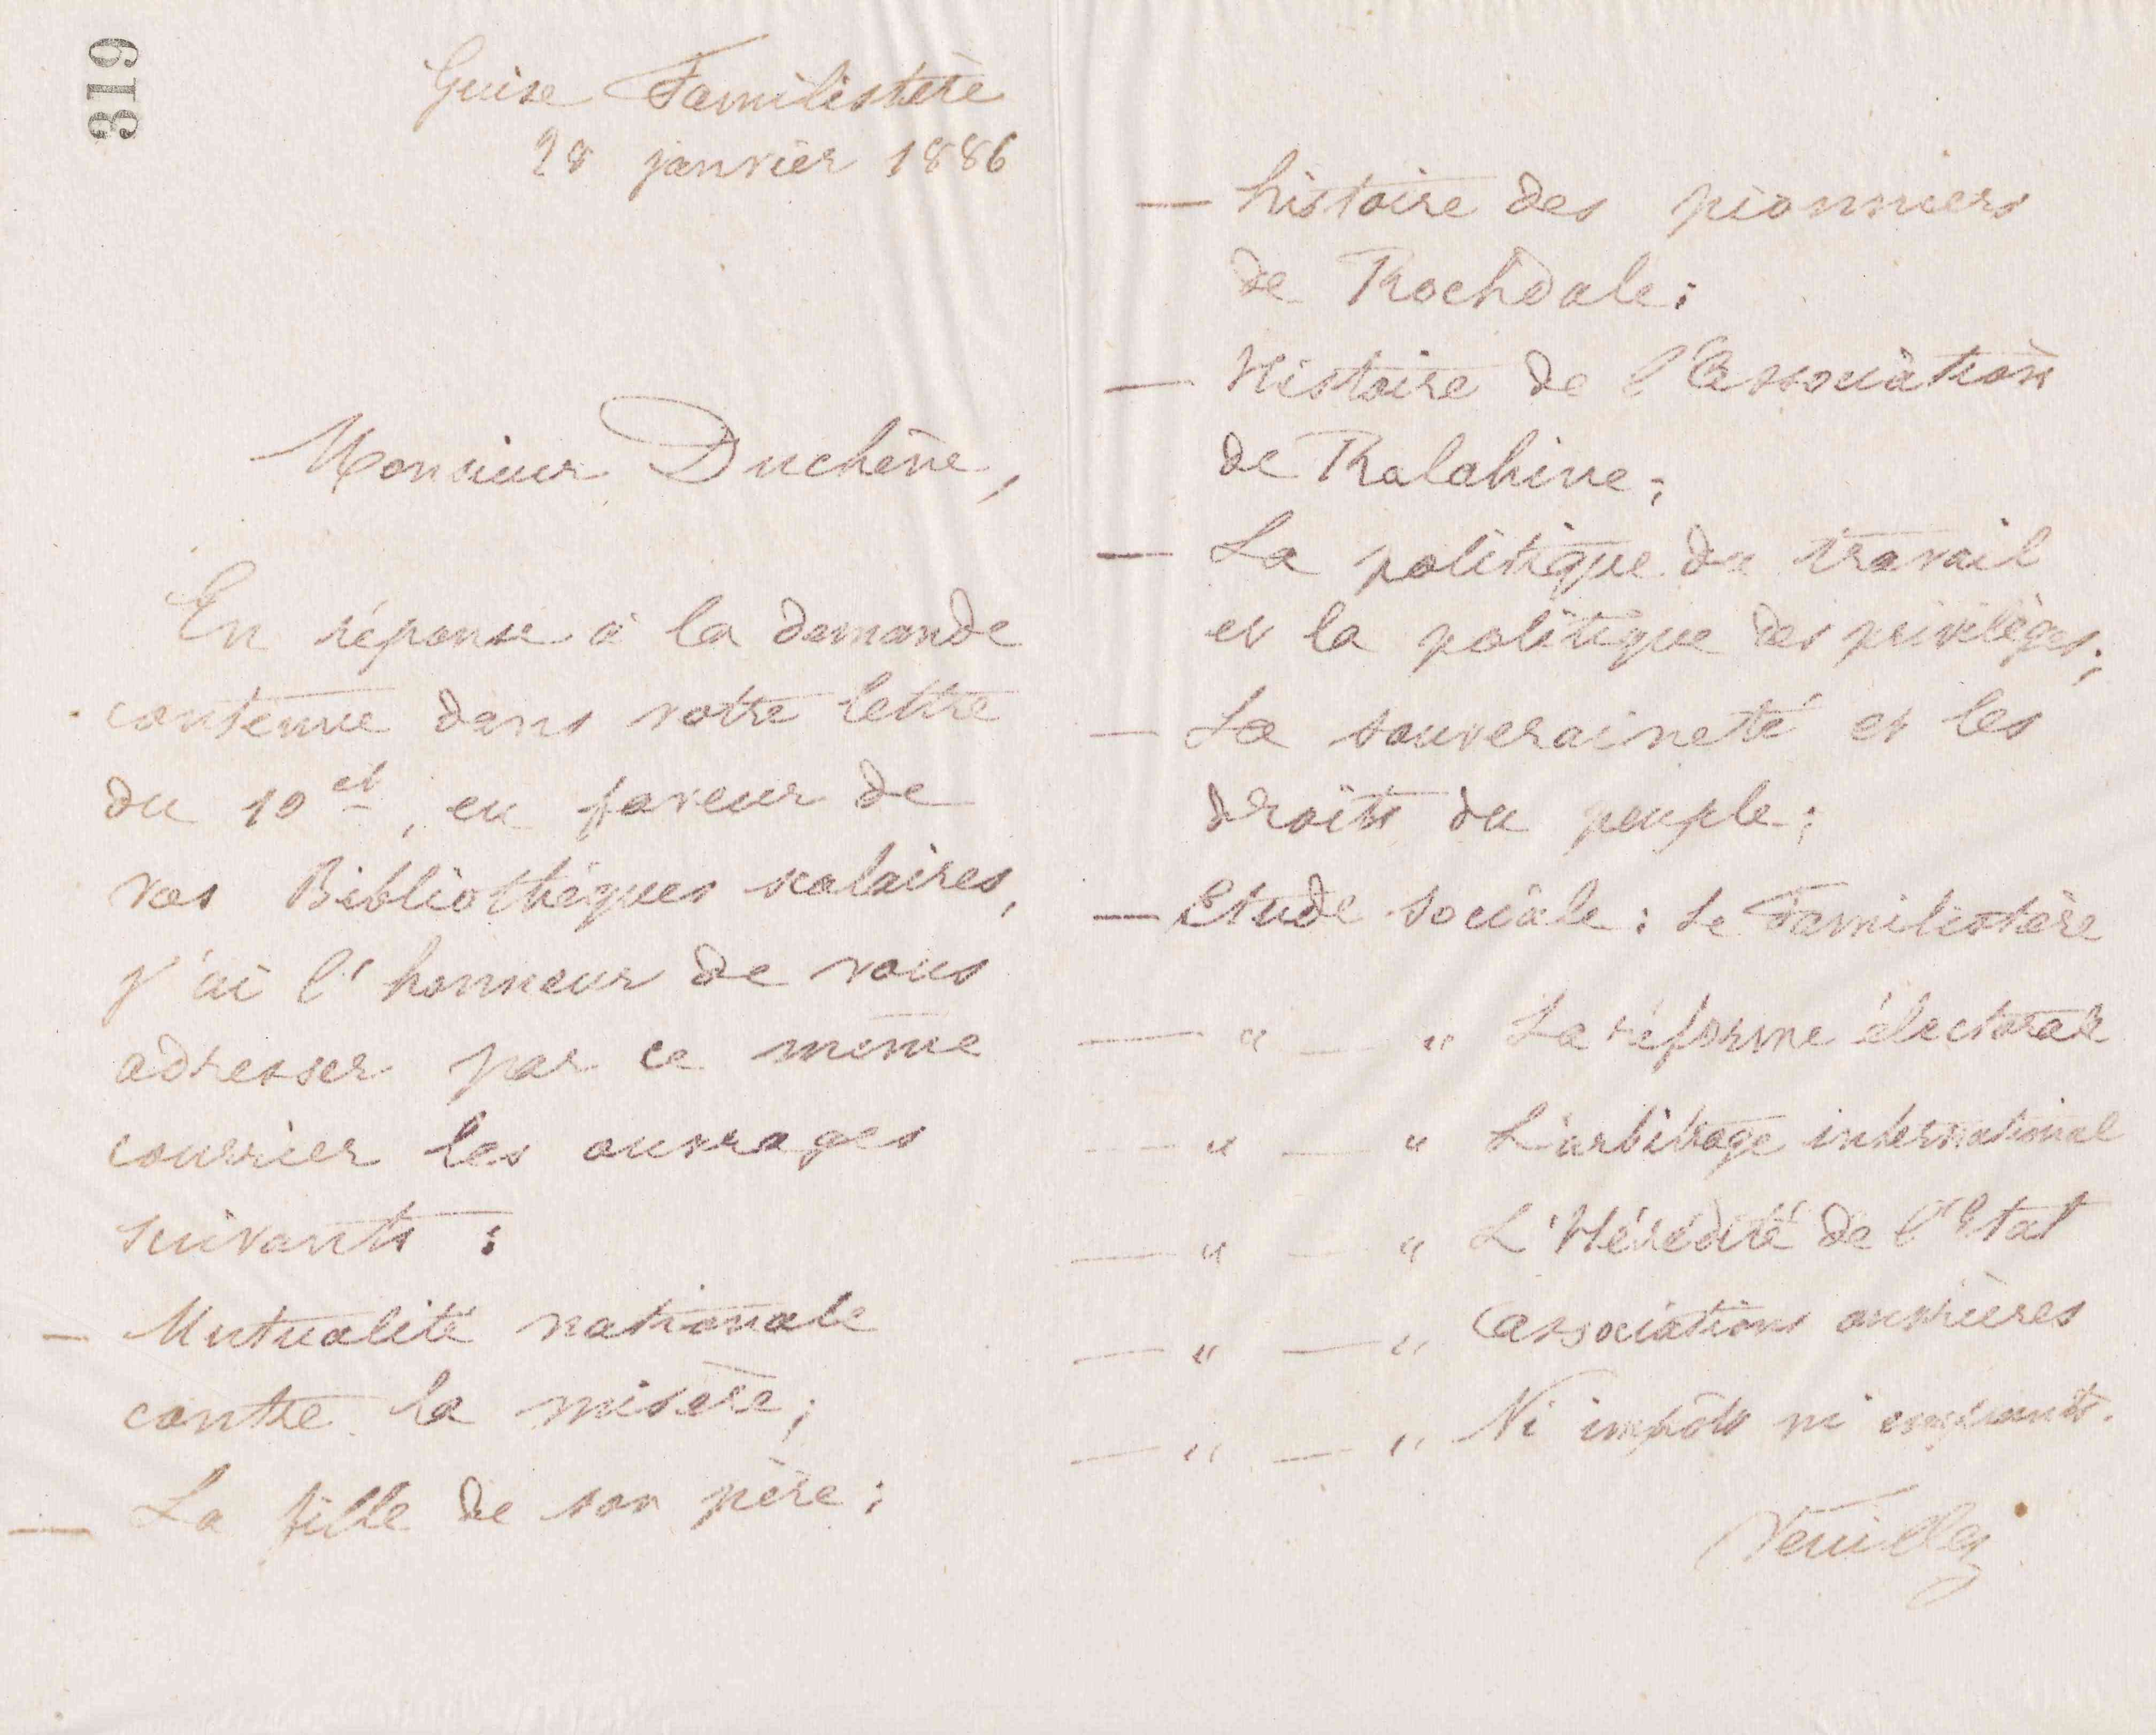 319
Guise Familistère
28 janvier 1886
Monsieur Duchêne,
En réponse à la demande
contenue dans votre lettre
du 10 ct, en faveur de
vos Bibliothèques scolaires,
j'ai l'honneur de vous
adresser par ce même
courrier les ouvrages
suivants :
— Mutualité nationale
contre la misère ;
— La fille de son père ;
— histoire des pionniers
de Rochdale ;
— Histoire de l'Association
de Ralahine ;
— La politique du travail
et la politique des privilèges ;
— La souveraineté et les
droits du peuple ;
— Etude sociale : Le Familistère
— " — " La réforme électorale
— " — " L'arbitrage international
— " — " L'Hérédité de l'Etat
— " — " Associations ouvrières
— " — " Ni impôts ni emprunts.
Veuillez